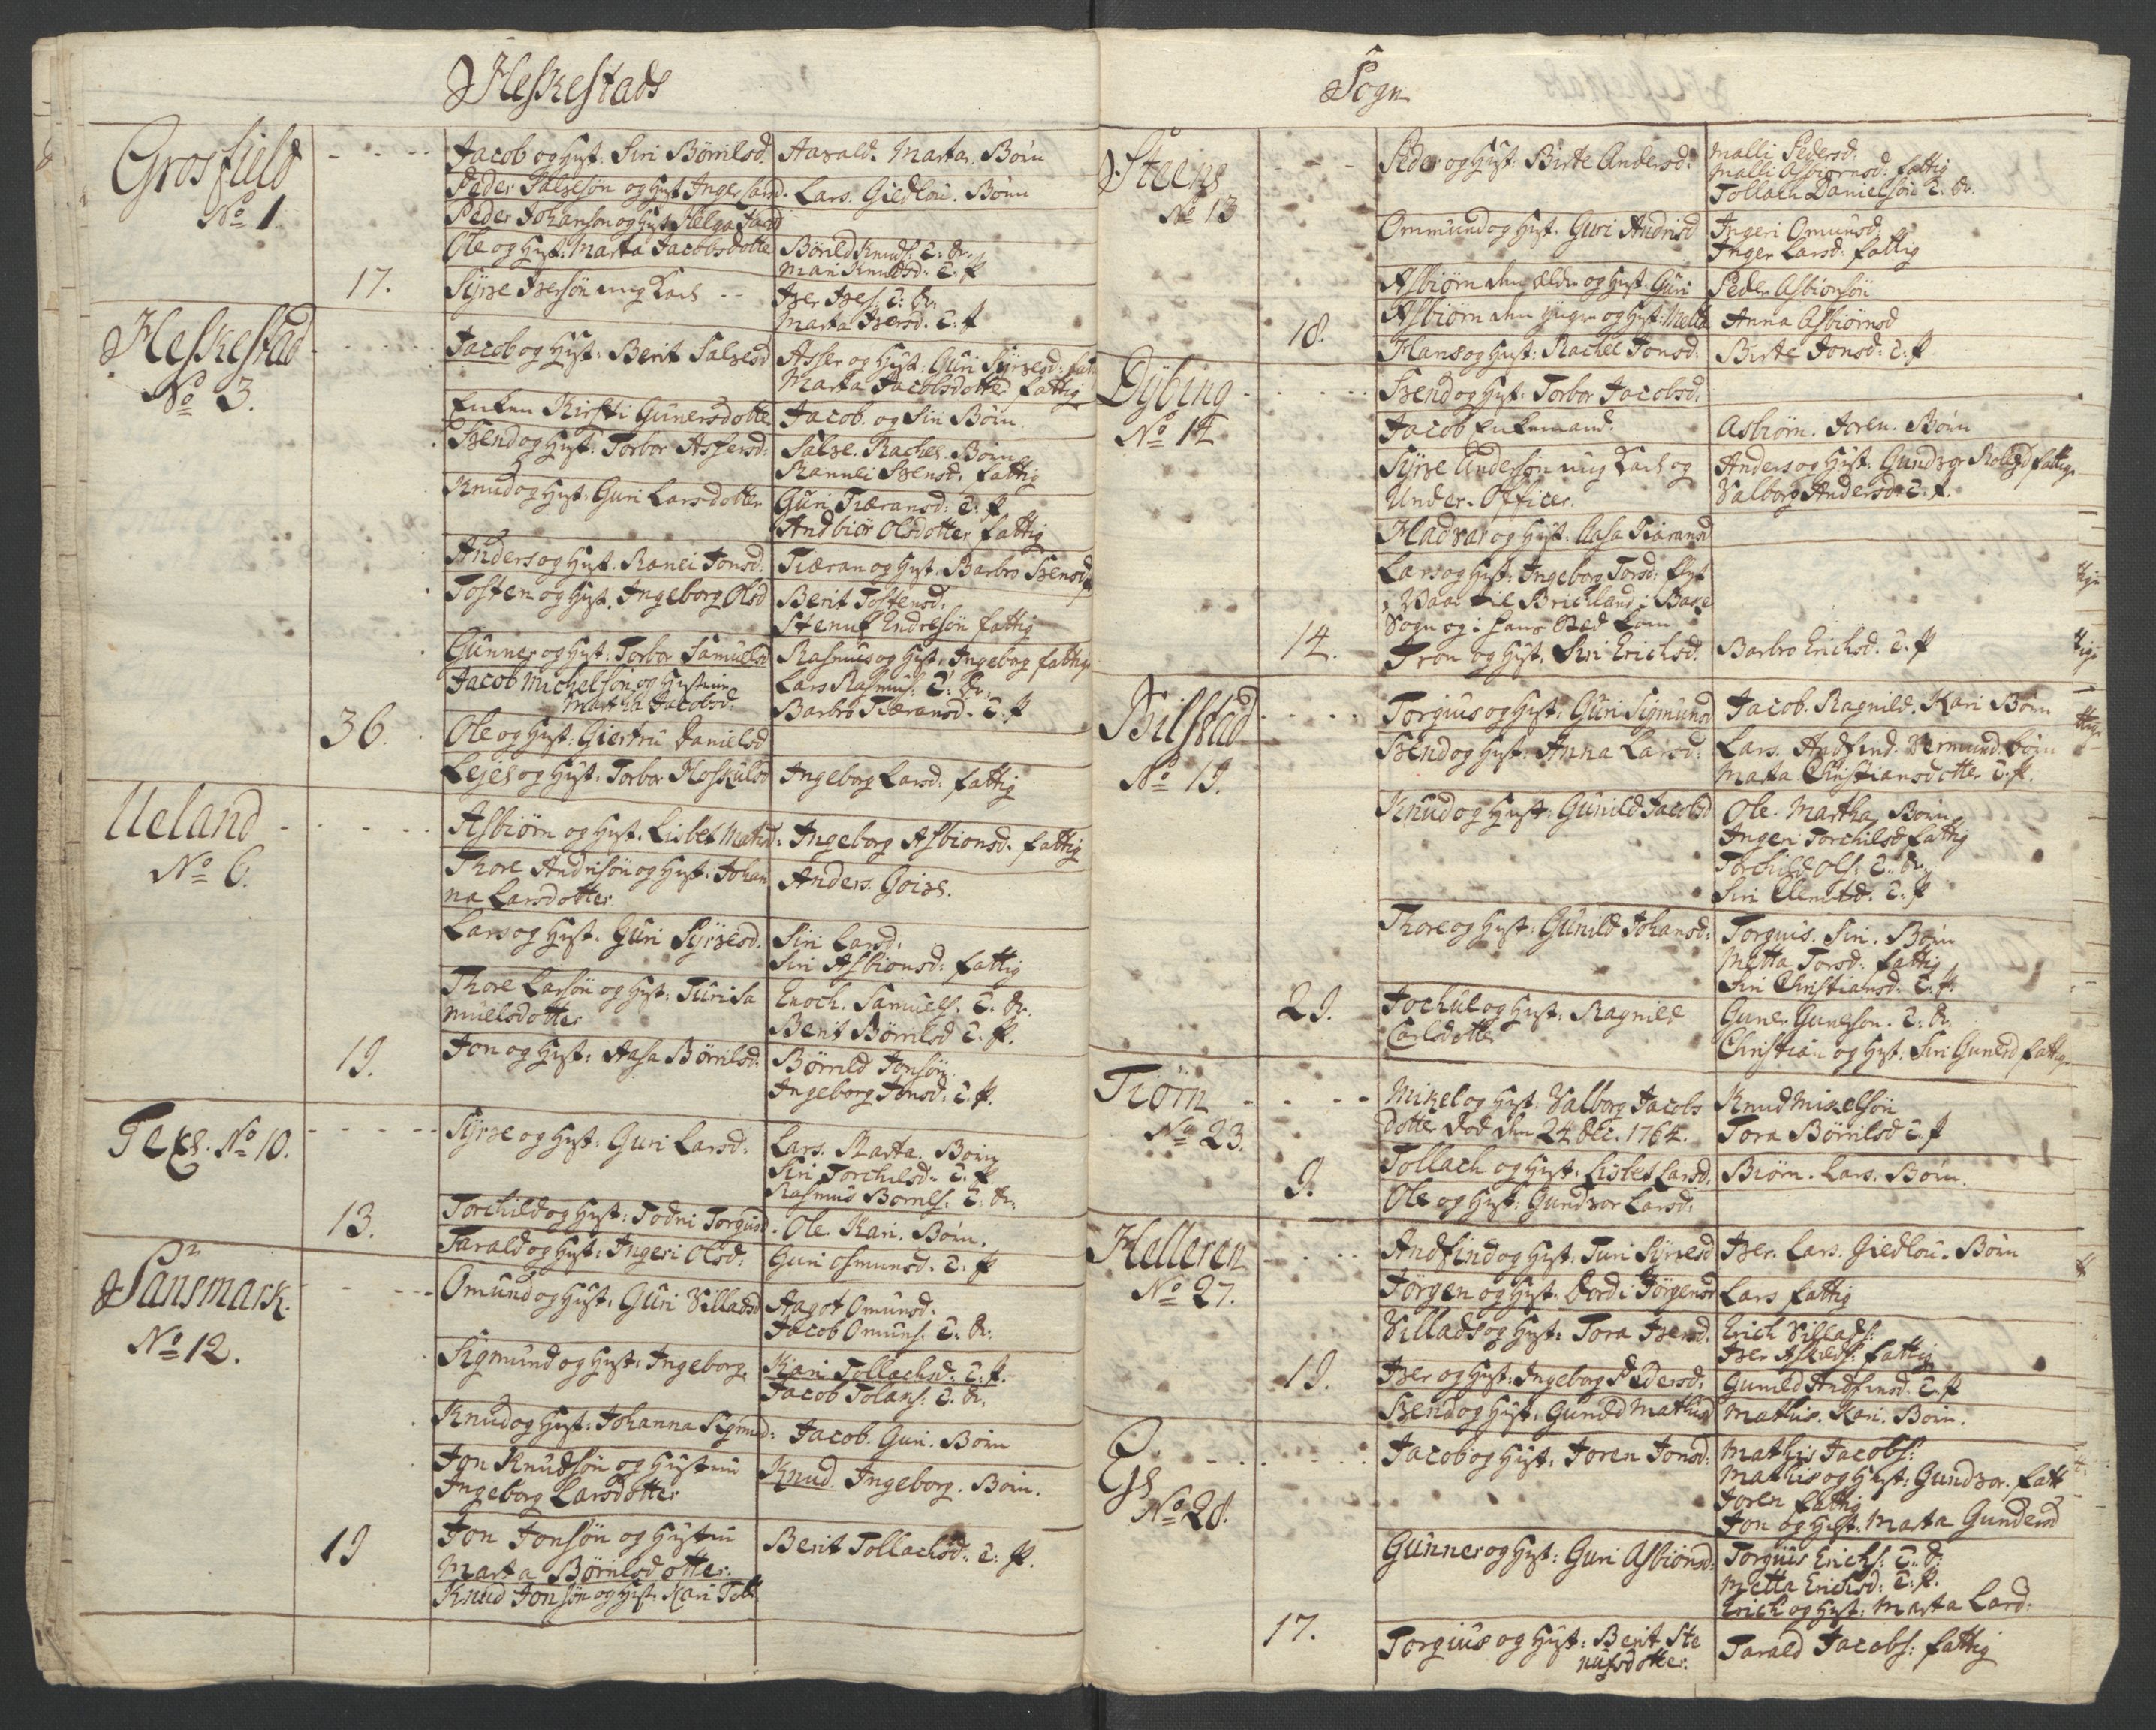 Heskestads
Grosfield
No 1.
17.
Jacob og Hust: Siri Börrilsd.
Aavald. Marta. Börn
Peder Salvesön og Hust Inger Larsd.
Lars. Giedlou. Börn
Peder Johanson og Hust Helga
Ole og Hust: Marta Jacobsdotte
Börild Knuds: T: Dr.
Mari Knudsd: T: P
Syrve Iversön ung Karl
Iver Ivers: T: Dr.
Marta Iversd. T: P
Heskestad
No 3.
36.
Jacob og Hust: Berit Salvesd
Asser og Hust: Guri Syrvesd:
Marta Jacobsdotter fattig
Enken Kirsti Gunersdotte
Jacob. og Siri Börn
Svend og Hust: Torbor Assersd:
Salve. Rachel. Börn
Rannei Svensd: fattig
Knud og Hust: Guri Larsdotter
Guri Tiæransd: T: P
Andbiör Olsdotter fattig
Anders og Hust. Ranei Jonsd.
Tiæran og Hust. Barbro Svensd
Tosten og Hust. Ingeborg Olsd
Berit Tostensd:
Stenuf Endresön fattig
Gunner og Hust: Torbor Samuelsd
Rasmus og Hust: Ingeborg fattig
Jacob Michelsön og Hustrue
Martha Jacobsd:
Lars Rasmus: T: Dr.
Barbro Tiæransd. T: P
Ole og Hust: Giertru Danielsd
Lejel og Hust: Torbor Hoskulsd
Ingeborg Larsd: fattig
Ueland
No 6.
19.
Asbiörn og Hust. Lisbet Matisd:
Ingeborg Asbionsd. fattig
Thore Andrisön og Hust. Johan
na Larsdotter
Anders. Goivel.
Lars og Hust. Guri Syrvesd.
Siri Larsd:
Siri Asbionsd: fattig
Thore Larsön og Hust: Turi Sa
muelsdotter
Enoch. Samuels. T. Dr.
Berit Börrilsd T. P.
Jon og Hust: Aasa Börrilsd.
Börrild Jonsön.
Ingeborg Jonsd: T. P.
No 10.
13.
Syrve og Hust: Guri Larsd:
Lars. Marta. Börn
Siri Torchilsd: T. P
Rasmus Börrils: T. Dr.
Torchild og Hust: Todni Torgusd.
Ole. Kari. Börn.
Tarald og Hust: Ingeri Olsd:
Guri Osmunsd. T: P
Sansmark.
No 12.
19
Omund og Hust: Guri Villadsd
Aagot Omunsd.
Jacob Omuns: T. Dr.
Sigmund og Hust: Ingeborg.
Kari Tollachsd. T: P.
Jacob Tolans: T. Dr.
Knud og Hust: Johanna Sigmud:
Jacob. Guri. Börn
Jon Knudsön og Hustrue
Ingeborg Larsdotter
Knud. Ingeborg. Börn.
Jon Jonsön og Hustru
Marta Börrilsdotter.
Berit Tollachsd: T: P.
Knud Jonsön og Hust. Kari Toll
Sogn
Steens
No 13
18.
Peder og Hust: Birte Andersd:
Malli Pedersd:
Malli Asbiörnsd: fattig
Tollach Danielsön T: Dr.
Ommund og Hust. Guri Andrisd
Ingeri Omunsd:
Inger Larsd: fattig
Asbiörn den ældre og Hust: Guri
Peder Asbiönsön
Asbiörn den yngre og Hust: Malli
Anna Asbiörnsd
Hans og Hust: Rachel Jonsd:
Birte Jonsd: T: P
Dybing
No 14
14.
Svend og Hust: Torbor Jacobsd:
Jacob Enkemand:
Asbiörn. Joren. Börn
Syrve Andersön ung Karl og
Under. Officer.
Anders og Hust: Gundvor fattig.
Valborg Andersd: T. P.
Hadvar og Hust: Aasa Tiäransd
Lars og Hust: Ingeborg Torsd: flyt
Vaar til Brichland i Bake
Sogn og i hans Sted kom
Tron og Hust: Siri Erichsd.
Barbro Erichsd. T. P
Bilstad
No 19.
29.
Torgius og Hust: Guri Sigmunsd
Jacob. Ragnild. Kari Börn
Svend og Hust: Anna Larsd:
Lars. Andfind. Vermund. börn
Marta Christiansdotter T. P.
Knud og Hust: Gunild Jacobsd
Ole. Martha Börn
Ingeri Torchilsd fattig
Torchild Ols: T. Dr.
Siri Clemtsd. T. P
Thore og Hust: Gunild Johansd:
Torguis. Siri. Börn
Metta Torsd: fattig
Siri Christiansd. T. P.
Jochul og Hust: Ragnild
Carlsdotter
Guner Gunerson. T: Dr.
Christian og Hust: Siri Gunersd fattig
Tiörn
No 23.
9.
Mikel og Hust: Valborg Jacobs
dotter död den 24 dec. 1764.
Knud Mikelsön
Tora Börrilsd T. P
Tollach og Hust: Lisbet Larsd:
Biörn. Lars. Börn.
Ole og Hust: Gundvor Larsd:
Helleren
No 27.
19.
Andfind og Hust: Turi Syrvesd
Iver. Lars. Giedlou. Börn
Jörgen og Hust. Dordi Jörgensd
Lars fattig
Villads og Hust: Tora Iversd.
Erich Villads:
Iver fattig
Iver og Hust: Ingeborg Pedersd:
Gunild Andfinsd: T. P
Svend og Hust: Gunild Mathisd
Mathis. Kari. Börn.
No 28.
17.
Jacob og Hust: Joren Jonsd:
Mathis Jacobs:
Mathis og Hust: Gundvor. fatt
Joren fattig
Jon og Hust: Marta Gundersd
Gunner og Hust: Guri Asbiönsd:
Torguis Erichs: T. D:
Metta Erichsd: T: P.
Erich og Hust: Marta Larsd:
Torgius og Hust: Berit Ste
nufsdotter.
Tarald Jacobs: fattig